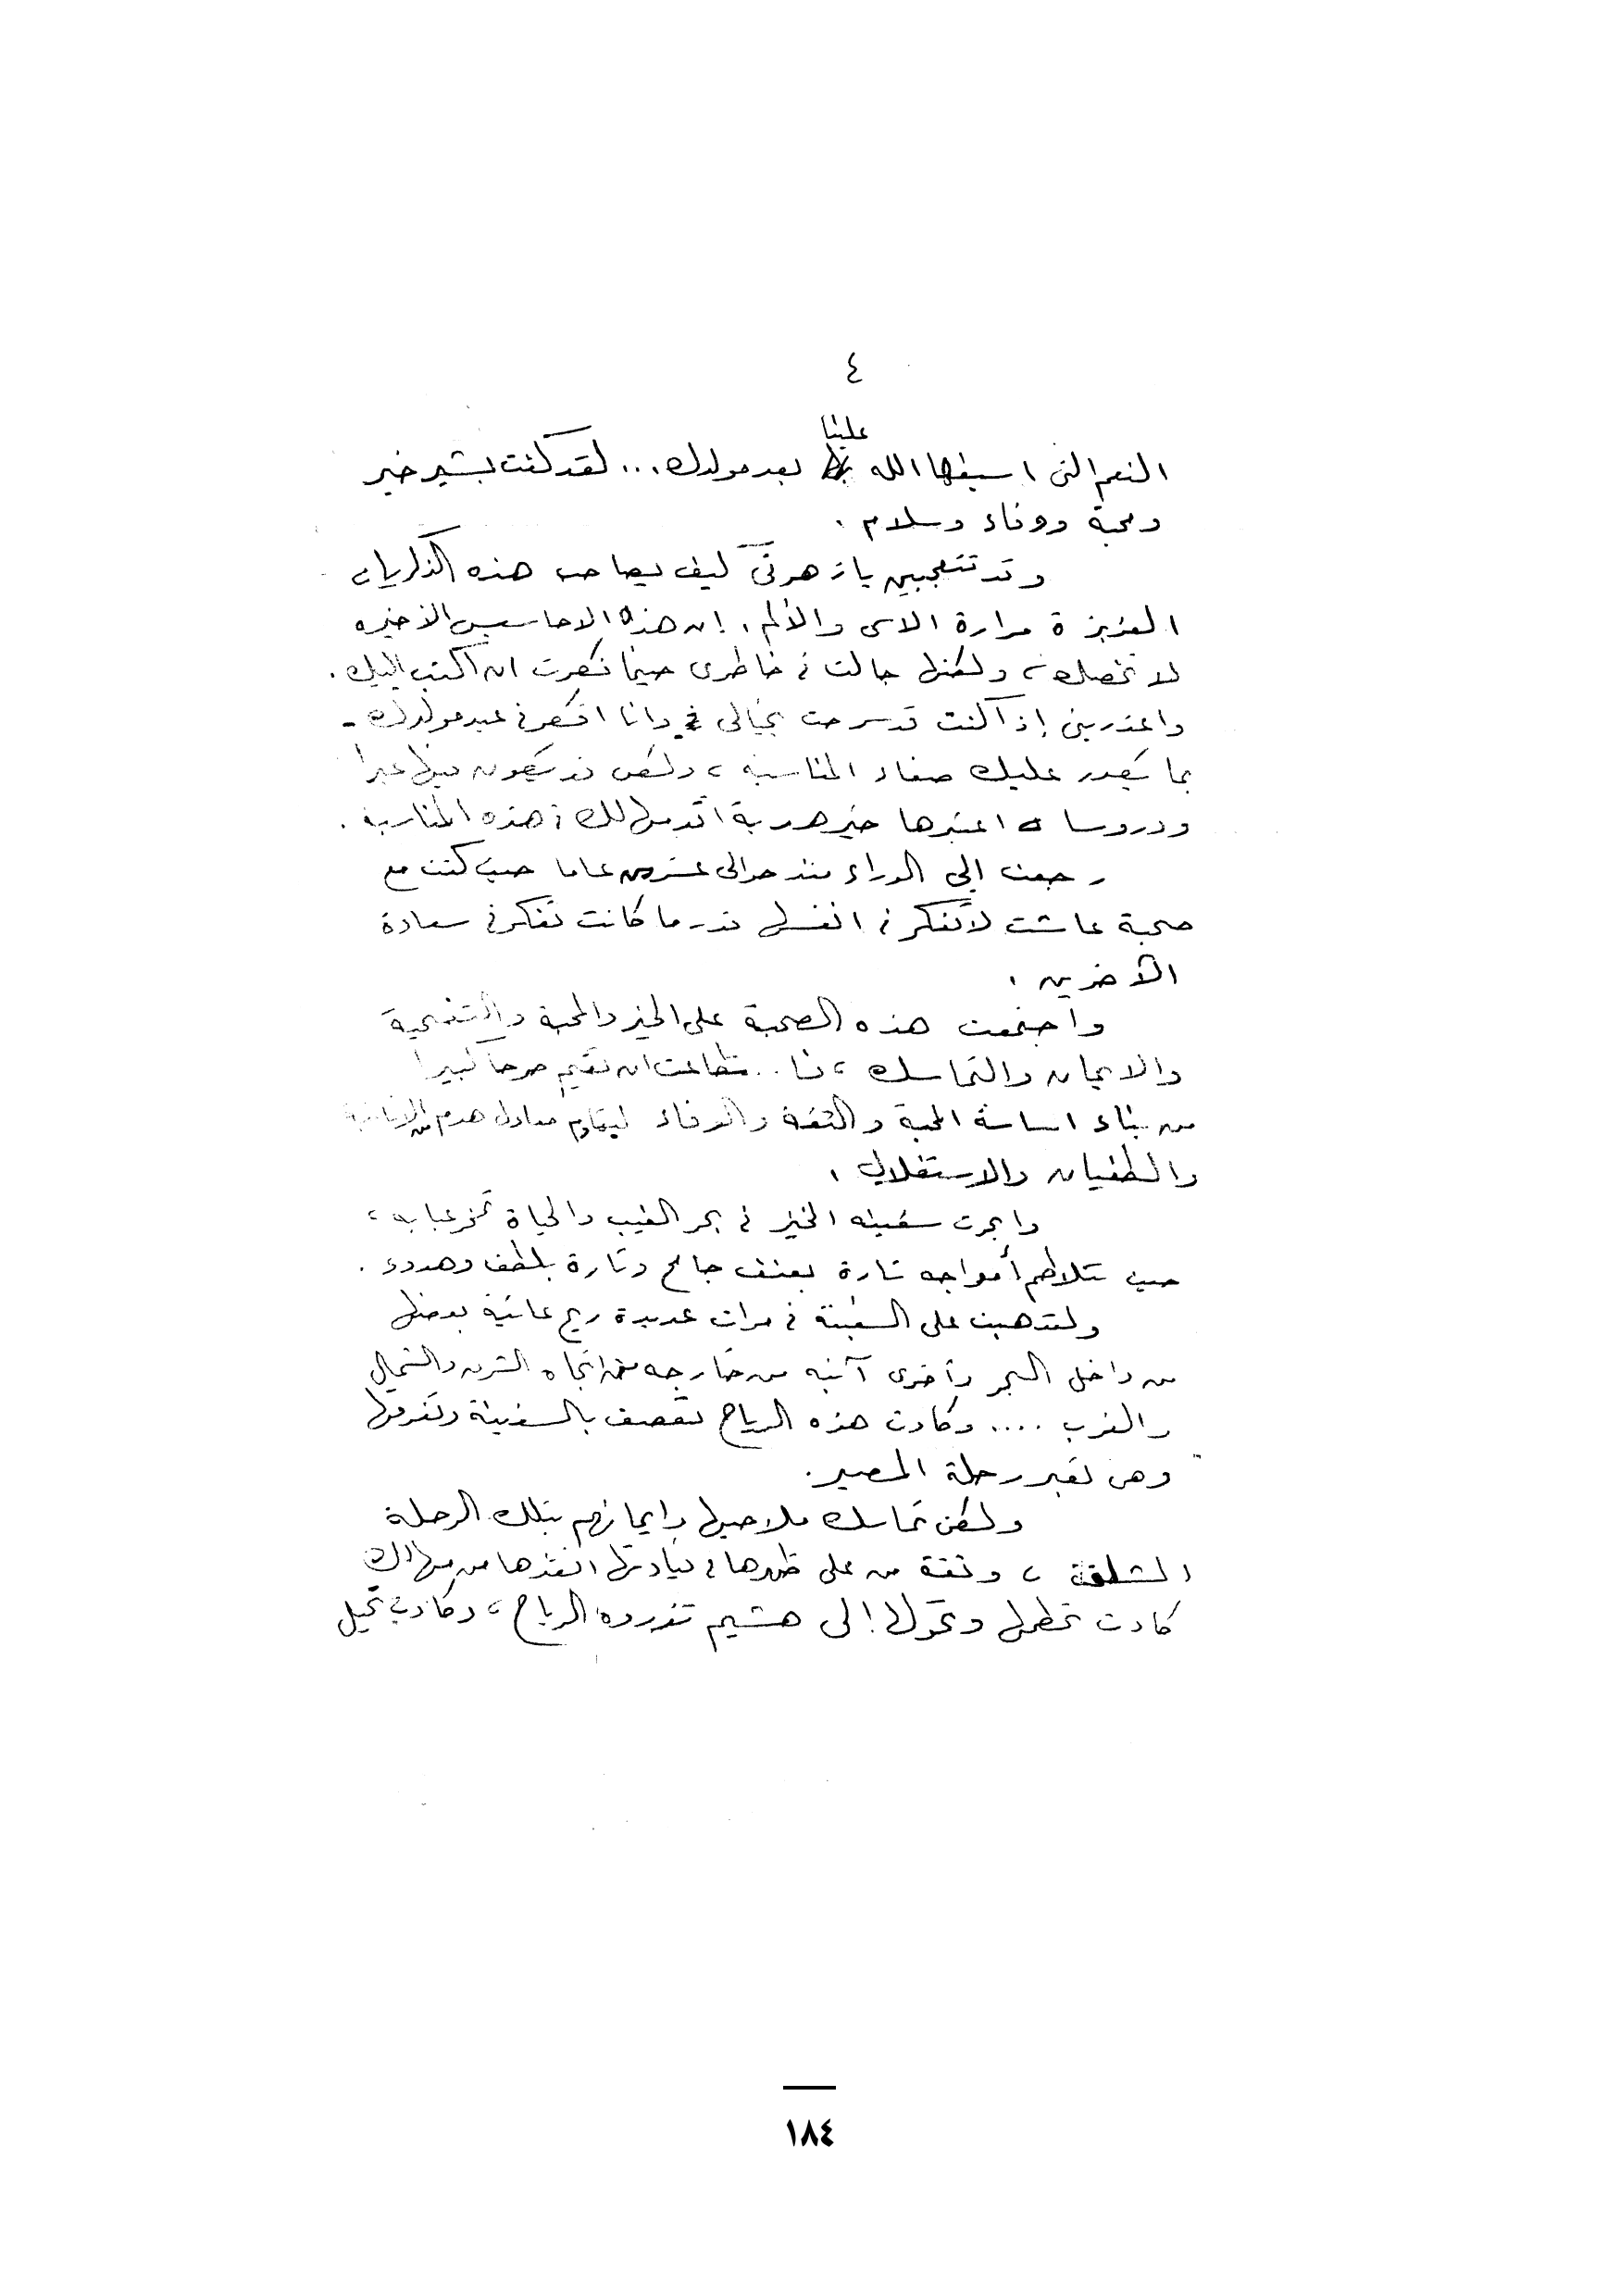 ٤
علينا
النعم التى اسبغها الله بعد مولدك ... لقد كنت بشير خير
ومحبة ووفاء وسلام .
وقد تتعجبين يا زهرتى كيف يصاحب هذه الذكريات
العزيزة مرارة الاسى والألم . إن هذه الاحاسيس الأخيره
لا تخصك ، ولكنها جالت فى خاطرى حينما فكرت ان اكتب اليك .
واعذرينى إذا كنت قد سرحت بخيالى وانا افكر فى عيد مولدك -
بما يكدر عليك صفاء المناسبه ، ولكن قد يكون فيها عبرا
ودروسا اعتبرها خير هدية أقدمها لك فى هذه المناسبة .
رجعت إلى الوراء منذ حوالى عشرين عاما حيث كنت مع
صحبة عاشت لا تفكر فى انفسها قدر ما كانت تفكر فى سعادة
الآخرين .
واجتمعت هذه الصحبة على الخير والمحبة والتضحية
والايمان والتماسك ، فاستطاعت ان تقيم صرحا كبيرا
من بناء اساسه المحبة والثقة والوفاء ليقاوم معاول هدم من الانانية
والطغيان والاستغلال .
وابحرت سفينه الخير فى بحر الغيب والحياة تمخر عبابه ،
حيث تتلاطم أمواجه تارة بعنف جامح وتارة بلطف وهدوء .
ولقد هبت على السفينة فى مرات عديدة ريح عاتية بعضها
من داخل البحر وأخرى آتيه من خارجه من اتجاه الشرق والشمال
والغرب .... وكادت هذه الرياح تعصف بالسفينة وتغرقها
وهى تعبر رحلة المصير .
ولكن تماسك ملاحيها وإيمانهم بتلك الرحلة
الشاقة ، وثقة من على ظهرها فى قيادتها انقذها من مهالك
كادت تحطمها وتحولها إلى هشيم تذروه الرياح ، وكادت تحيل
١٨٤